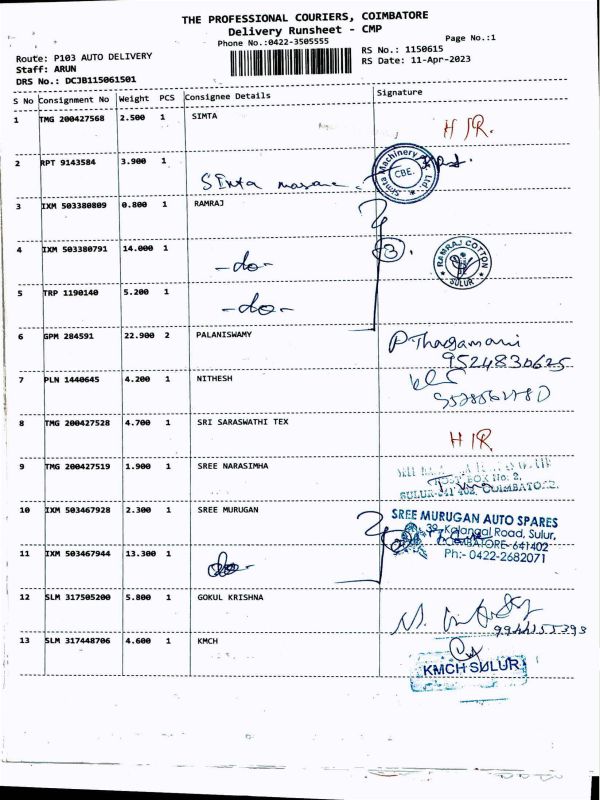 THE PROFESSIONAL COURIERS, COIMBATORE
Delivery Runsheet - CMP
Phone No.:0422-3505555
Page No.:1
Route: P103 AUTO DELIVERY
RS No.: 1150615
Staff: ARUN
RS Date: 11-Apr-2023
DRS No.: DCJB115061501
S No Consignment No Weight PCS Consignee Details Signature
1 TMG 200427568 2.500 1 SIMTA H/R.
2 RPT 9143584 3.900 1
Simta Machinery Ltd. CBE.
3 IXM 503380809 0.800 1 RAMRAJ
4 IXM 503380791 14.000 1 -do- 3. RAMRAJ COTTON SULUR
5 TRP 1190140 5.200 1 -do-
6 GPM 284591 22.900 2 PALANISWAMY P Thagamani
9524830625
7 PLN 1440645 4.200 1 NITHESH
8 TMG 200427528 4.700 1 SRI SARASWATHI TEX H/R
9 TMG 200427519 1.900 1 SREE NARASIMHA
POST BOX No. 2,
SULUR-641 402, COIMBATORE.
10 IXM 503467928 2.300 1 SREE MURUGAN SREE MURUGAN AUTO SPARES
Kalangal Road, Sulur,
COIMBATORE- 641402
11 IXM 503467944 13.300 1 -do- Ph:- 0422-2682071
12 SLM 317505200 5.800 1 GOKUL KRISHNA
13 SLM 317448706 4.600 1 KMCH
KMCH SULUR